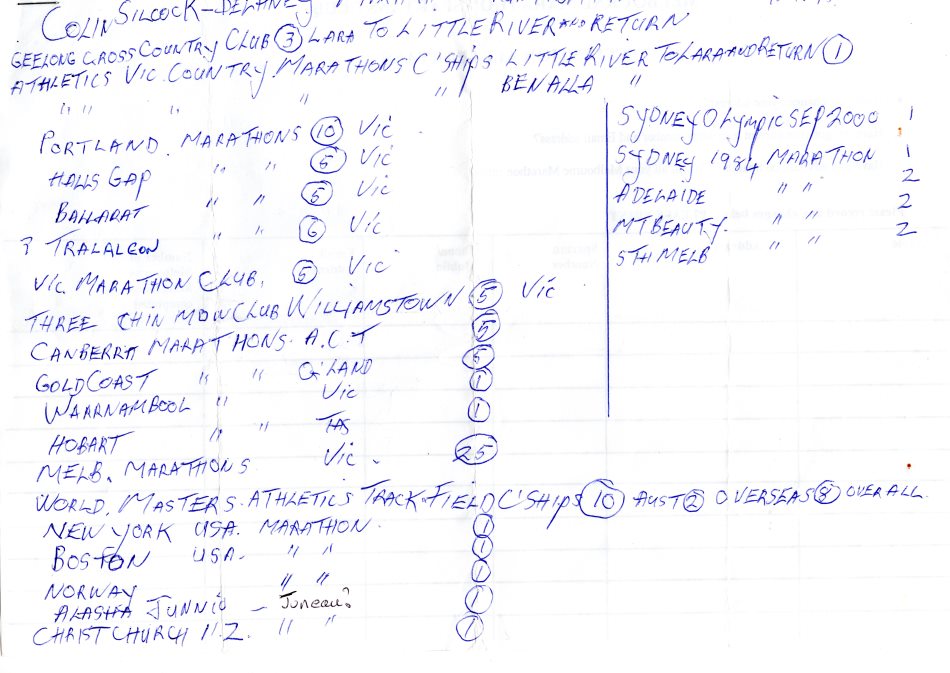 COLIN SILCOCK-DELANEY
GEELONG CROSS COUNTRY CLUB 3 LARA TO LITTLE RIVER AND RETURN
ATHLETICS VIC. COUNTRY. MARATHONS C'SHIPS LITTLE RIVER TO LARA AND RETURN 1
" " " " " BENALLA "
PORTLAND. MARATHONS 10 VIC
HALLS GAP " " 5 VIC
BALLARAT " " 5 VIC
? TRALALGON " " 6 VIC
VIC. MARATHON CLUB. 5 VIC
THREE CHIN MOW CLUB WILLIAMSTOWN 5 VIC
CANBERRA MARATHONS. A.C.T 5
GOLD COAST " " Q'LAND 5
WARRNAMBOOL " VIC 1
HOBART " " TAS 1
MELB. MARATHONS VIC. 25
WORLD. MASTERS. ATHLETICS TRACK & FIELD C'SHIPS 10 AUST 2 OVERSEAS 8 OVERALL
NEW YORK USA. MARATHON. 1
BOSTON USA. " " 1
NORWAY " " 1
ALASKA JUNNIO - Juneau? 1
CHRISTCHURCH N.Z. " " 1
SYDNEY OLYMPIC SEP 2000 1
SYDNEY 1984 MARATHON 1
ADELAIDE " " 2
MT BEAUTY. " " 2
STH MELB " " 2